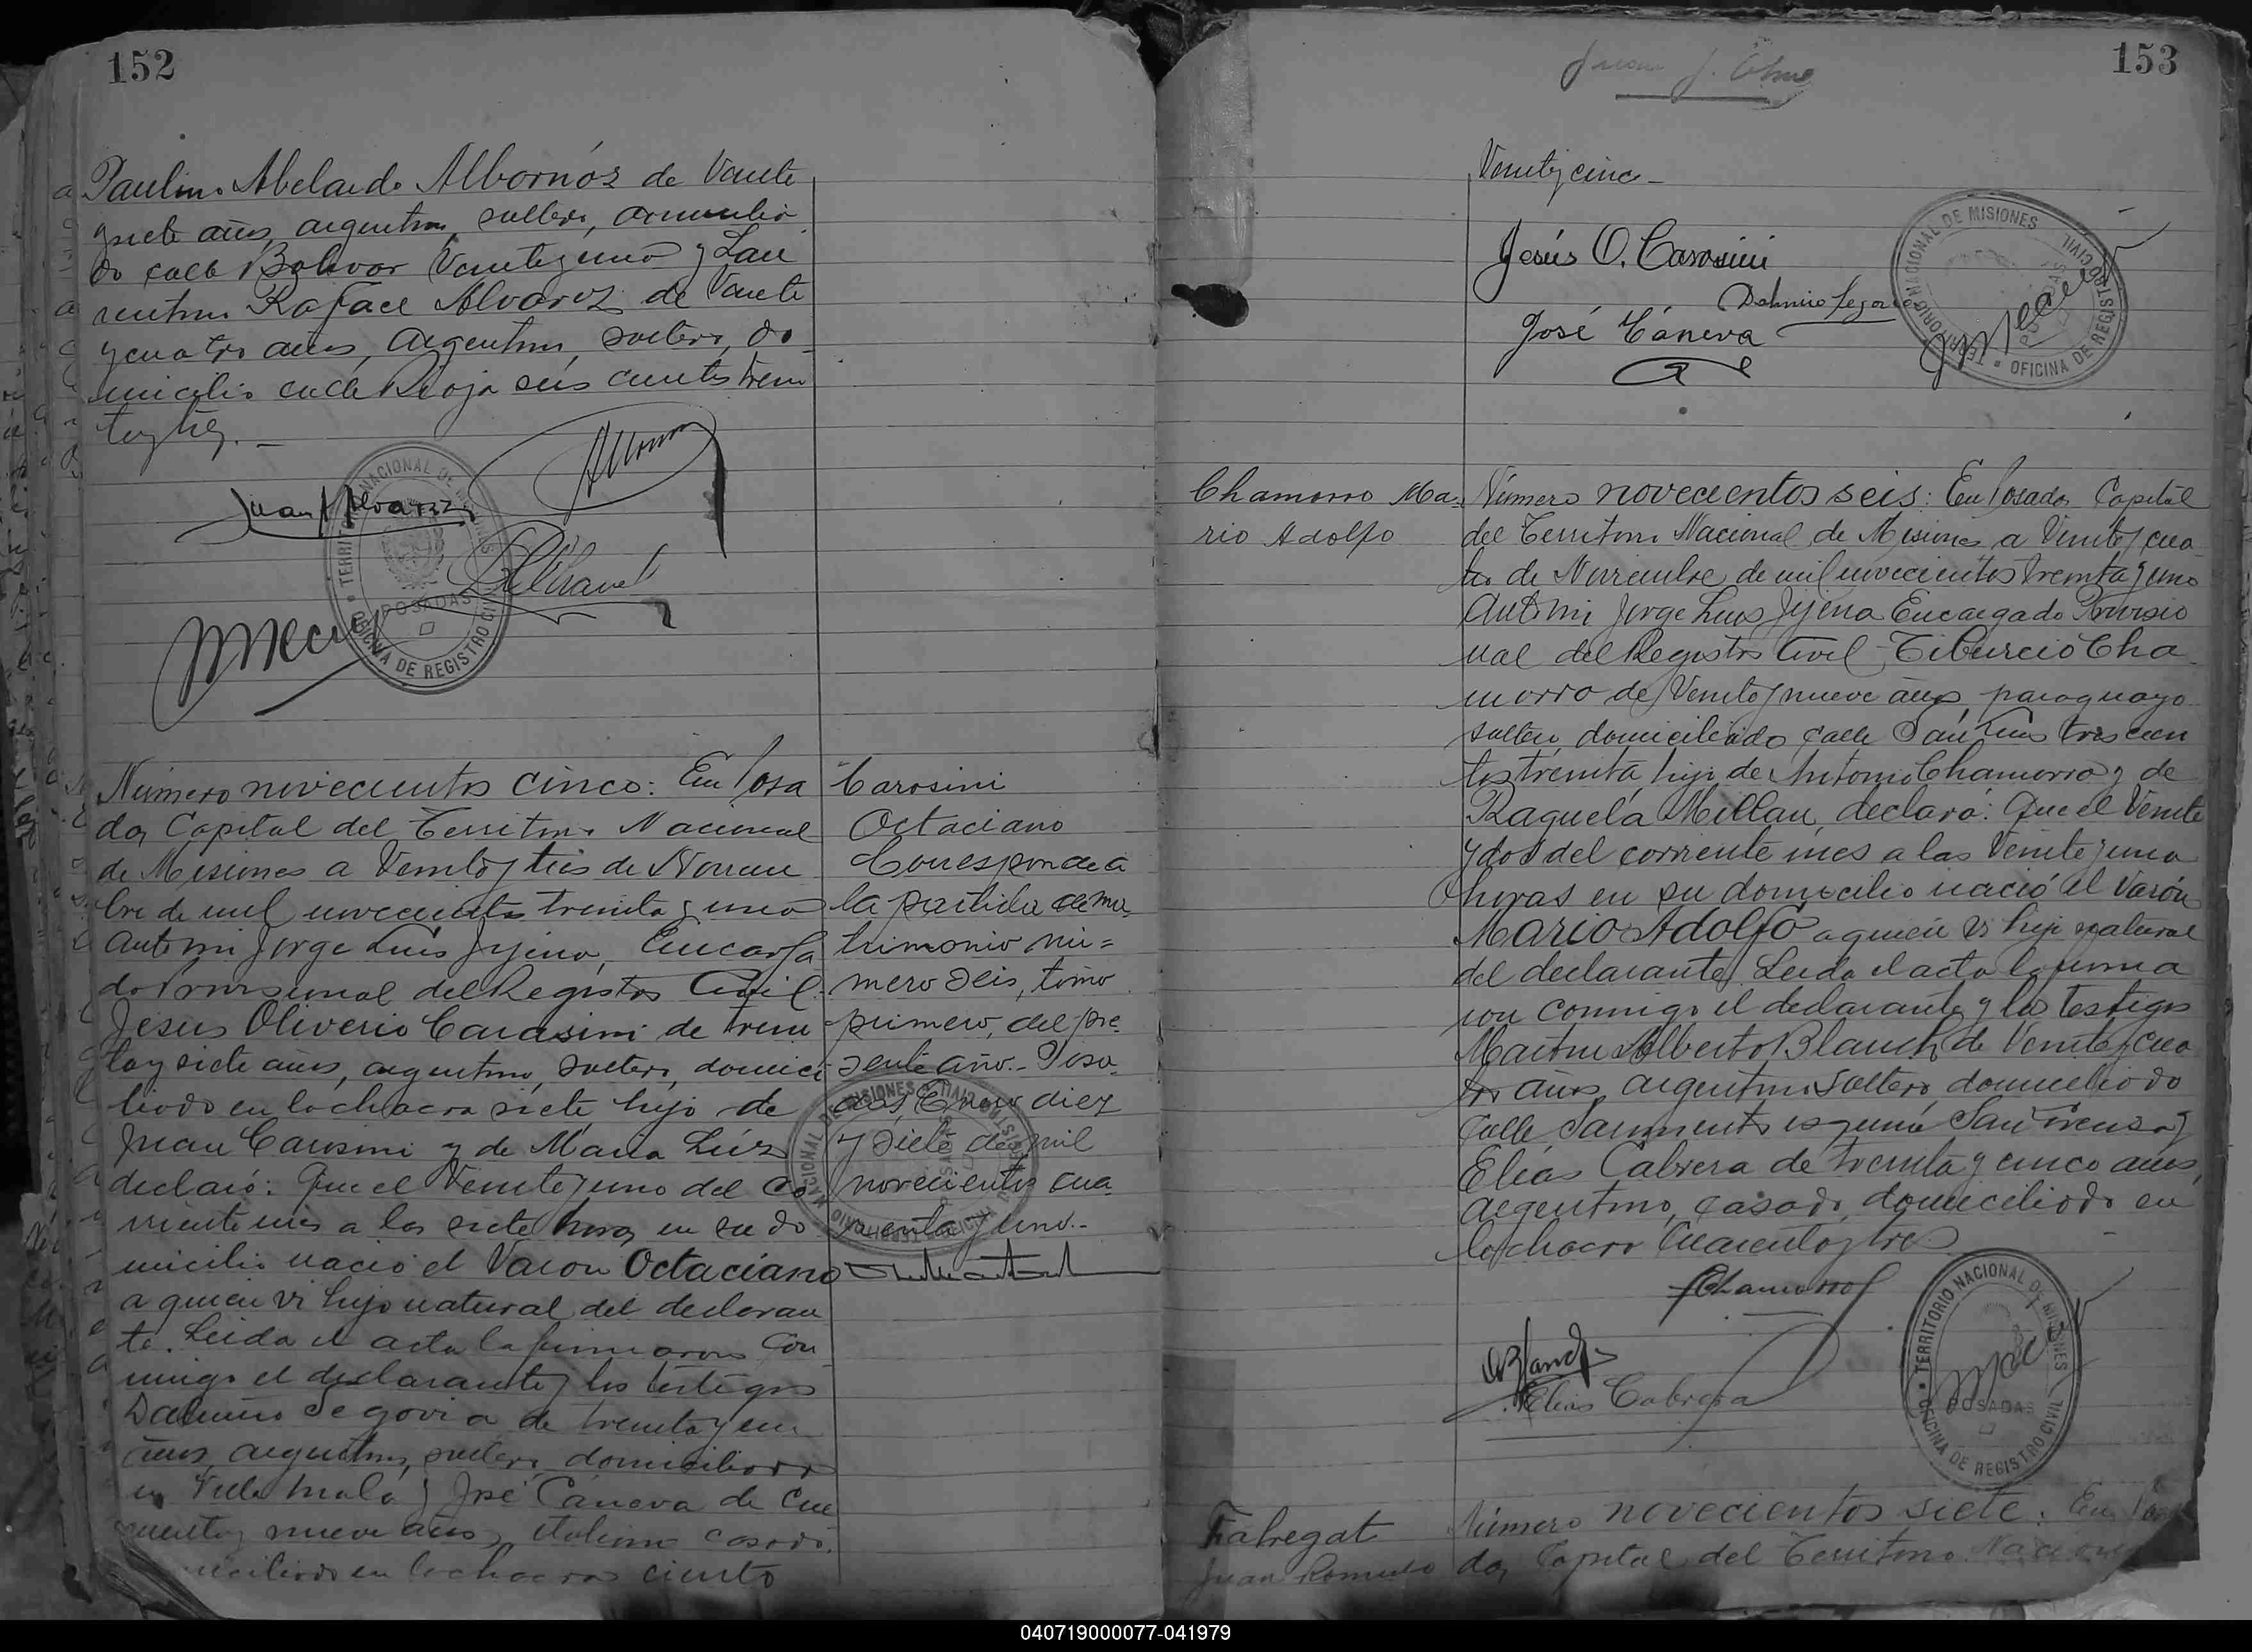 152
Paulino Abelardo Albornóz de Veinte
y siete años, argentino, soltero, domicilia
do calle Bolivar Veinteyuno y Lau
rentino Rafael Alvarez de Veinte
ycuatro años, argentino, soltero, do
micilio calle Rioja seis cientos trein
taytres.
Juan Alvarez
TERRITORIO NACIONAL DE MISIONES
POSADAS
OFICINA DE REGISTRO CIVIL
Número novecientos cinco: En Posa
das, Capital del Territorio Nacional
de Misiones a Veinteytres de Noviem
bre de mil novecientos treinta y uno
Ante mi Jorge Luis Jijena, Encarga
do Provisional del Registro Civil.
Jesus Oliverio Carosini de trein
tay siete años, argentino, soltero, domici
liado en la chacra siete, hijo de
Juan Carosini y de Maria Luiz
declaró: Que el Veinteyuno del co
rriente mes a las siete horas en su do
micilio nació el Varon Octaciano
a quien vi hijo natural del declaran
te. Leida el acta la firmaron con
migo el declarante y los testigos
Dalmiro Segovia de treinta y un
años, argentino, soltero, domiciliado
en Villa Mola y José Cáneva de cin
cuentay nueve años, italiano casado,
miciliado en la chacra ciento
Carosini
Octaciano
Corresponde a
la partida de ma-
trimonio nú=
mero seis, tomo
primero, del pre-
sente año.- Posa-
das, Enero diez
y siete de mil
novecientos cua-
renta y uno.-
153
Juan J.
Veinteycinco-
Jesús O. Carosini
Dalmiro Segovia
José Cáneva
TERRITORIO NACIONAL DE MISIONES
POSADAS
OFICINA DE REGISTRO CIVIL
Chamorro Ma-
rio Adolfo
Número novecientos seis: En Posadas, Capital
del Territorio Nacional de Misiones a Veinteycua
tro de Noviembre de mil novecientos treinta y uno
Ante mi Jorge Luis Jijena Encargado Provisio
nal del Registro Civil Tiburcio Cha
morro de Veinteynueve años, paraguayo
soltero, domiciliado calle San Luis trescien
tos treinta, hijo de Antonio Chamorro y de
Raquela Millan, declaró: Que el Veinte
y dos del corriente mes a las Veinteyuna
horas en su domicilio nació el Varón
Mario Adolfo a quien vi hijo natural
del declarante. Leida el acta la firma
ron conmigo el declarante y los testigos
Martin Alberto Blanch de Veinteycua
tro años, argentino, soltero, domiciliado
calle Sarmiento esquina San Lorenzo y
Elías Cabrera de treinta y cinco años,
argentino, casado, domiciliado en
la chacra Cuarentaytres
Chamorro
Blanch
Elias Cabrera
TERRITORIO NACIONAL DE MISIONES
POSADAS
OFICINA DE REGISTRO CIVIL
Fabregat
Juan Romulo
Número novecientos siete: En Posa
das, Capital del Territorio Nacional
040719000077-041979